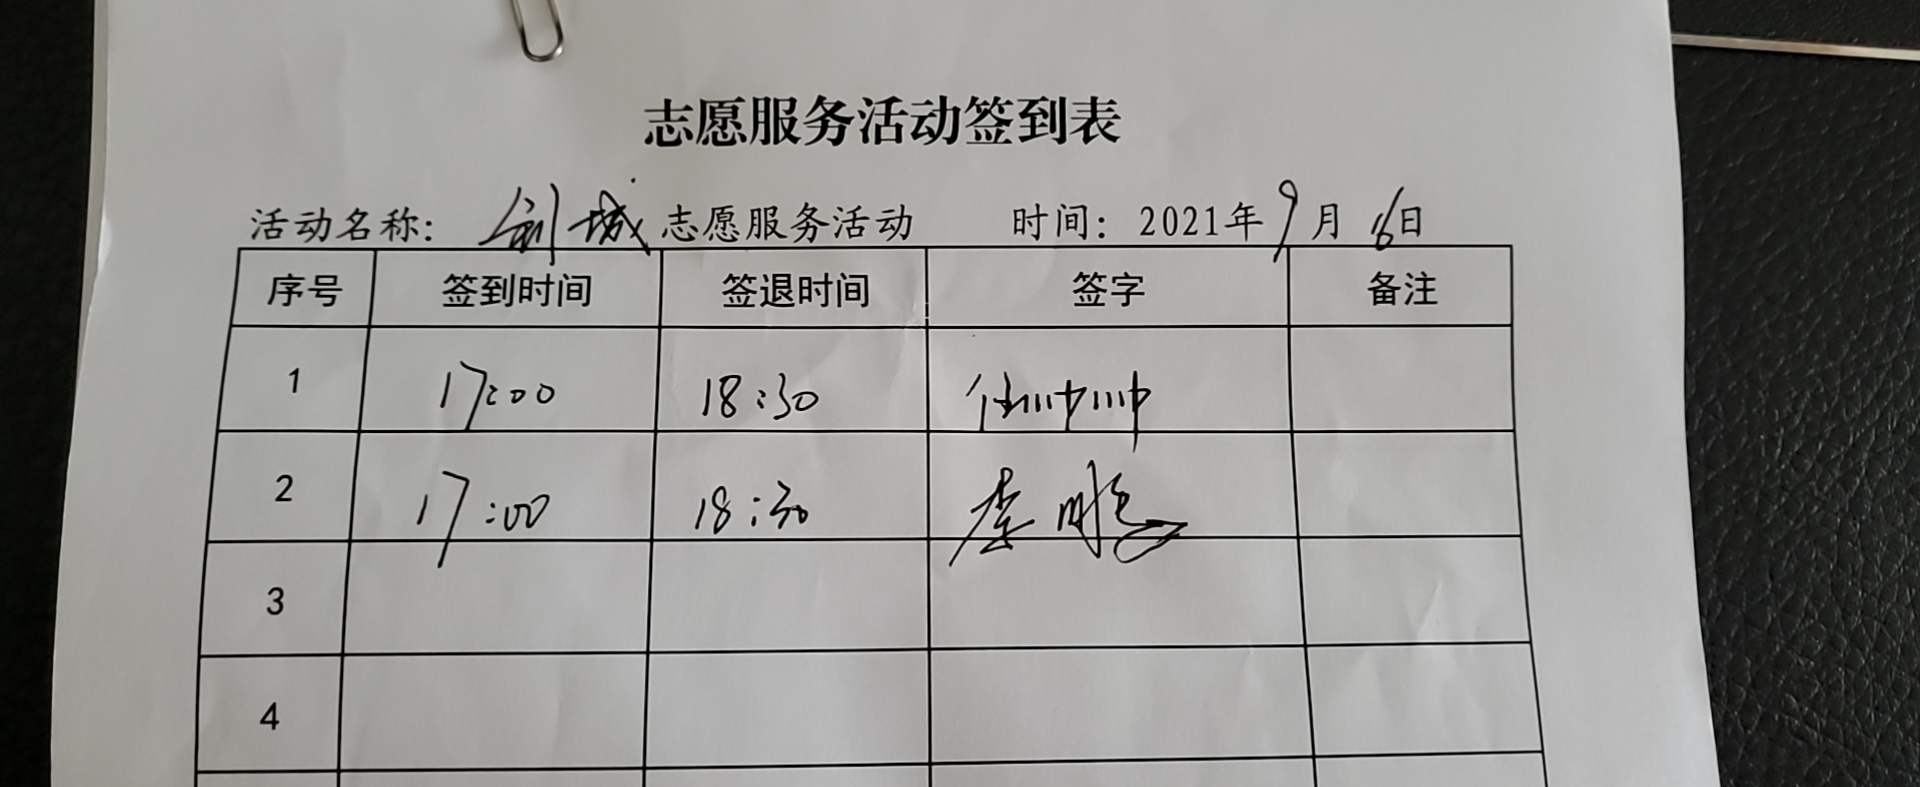 志愿服务活动签到表
活动名称: 创城 志愿服务活动 时间: 2021年9月6日
序号 签到时间 签退时间 签字 备注
1 17:00 18:30 任帅帅
2 17:00 18:30 李鹏
3
4